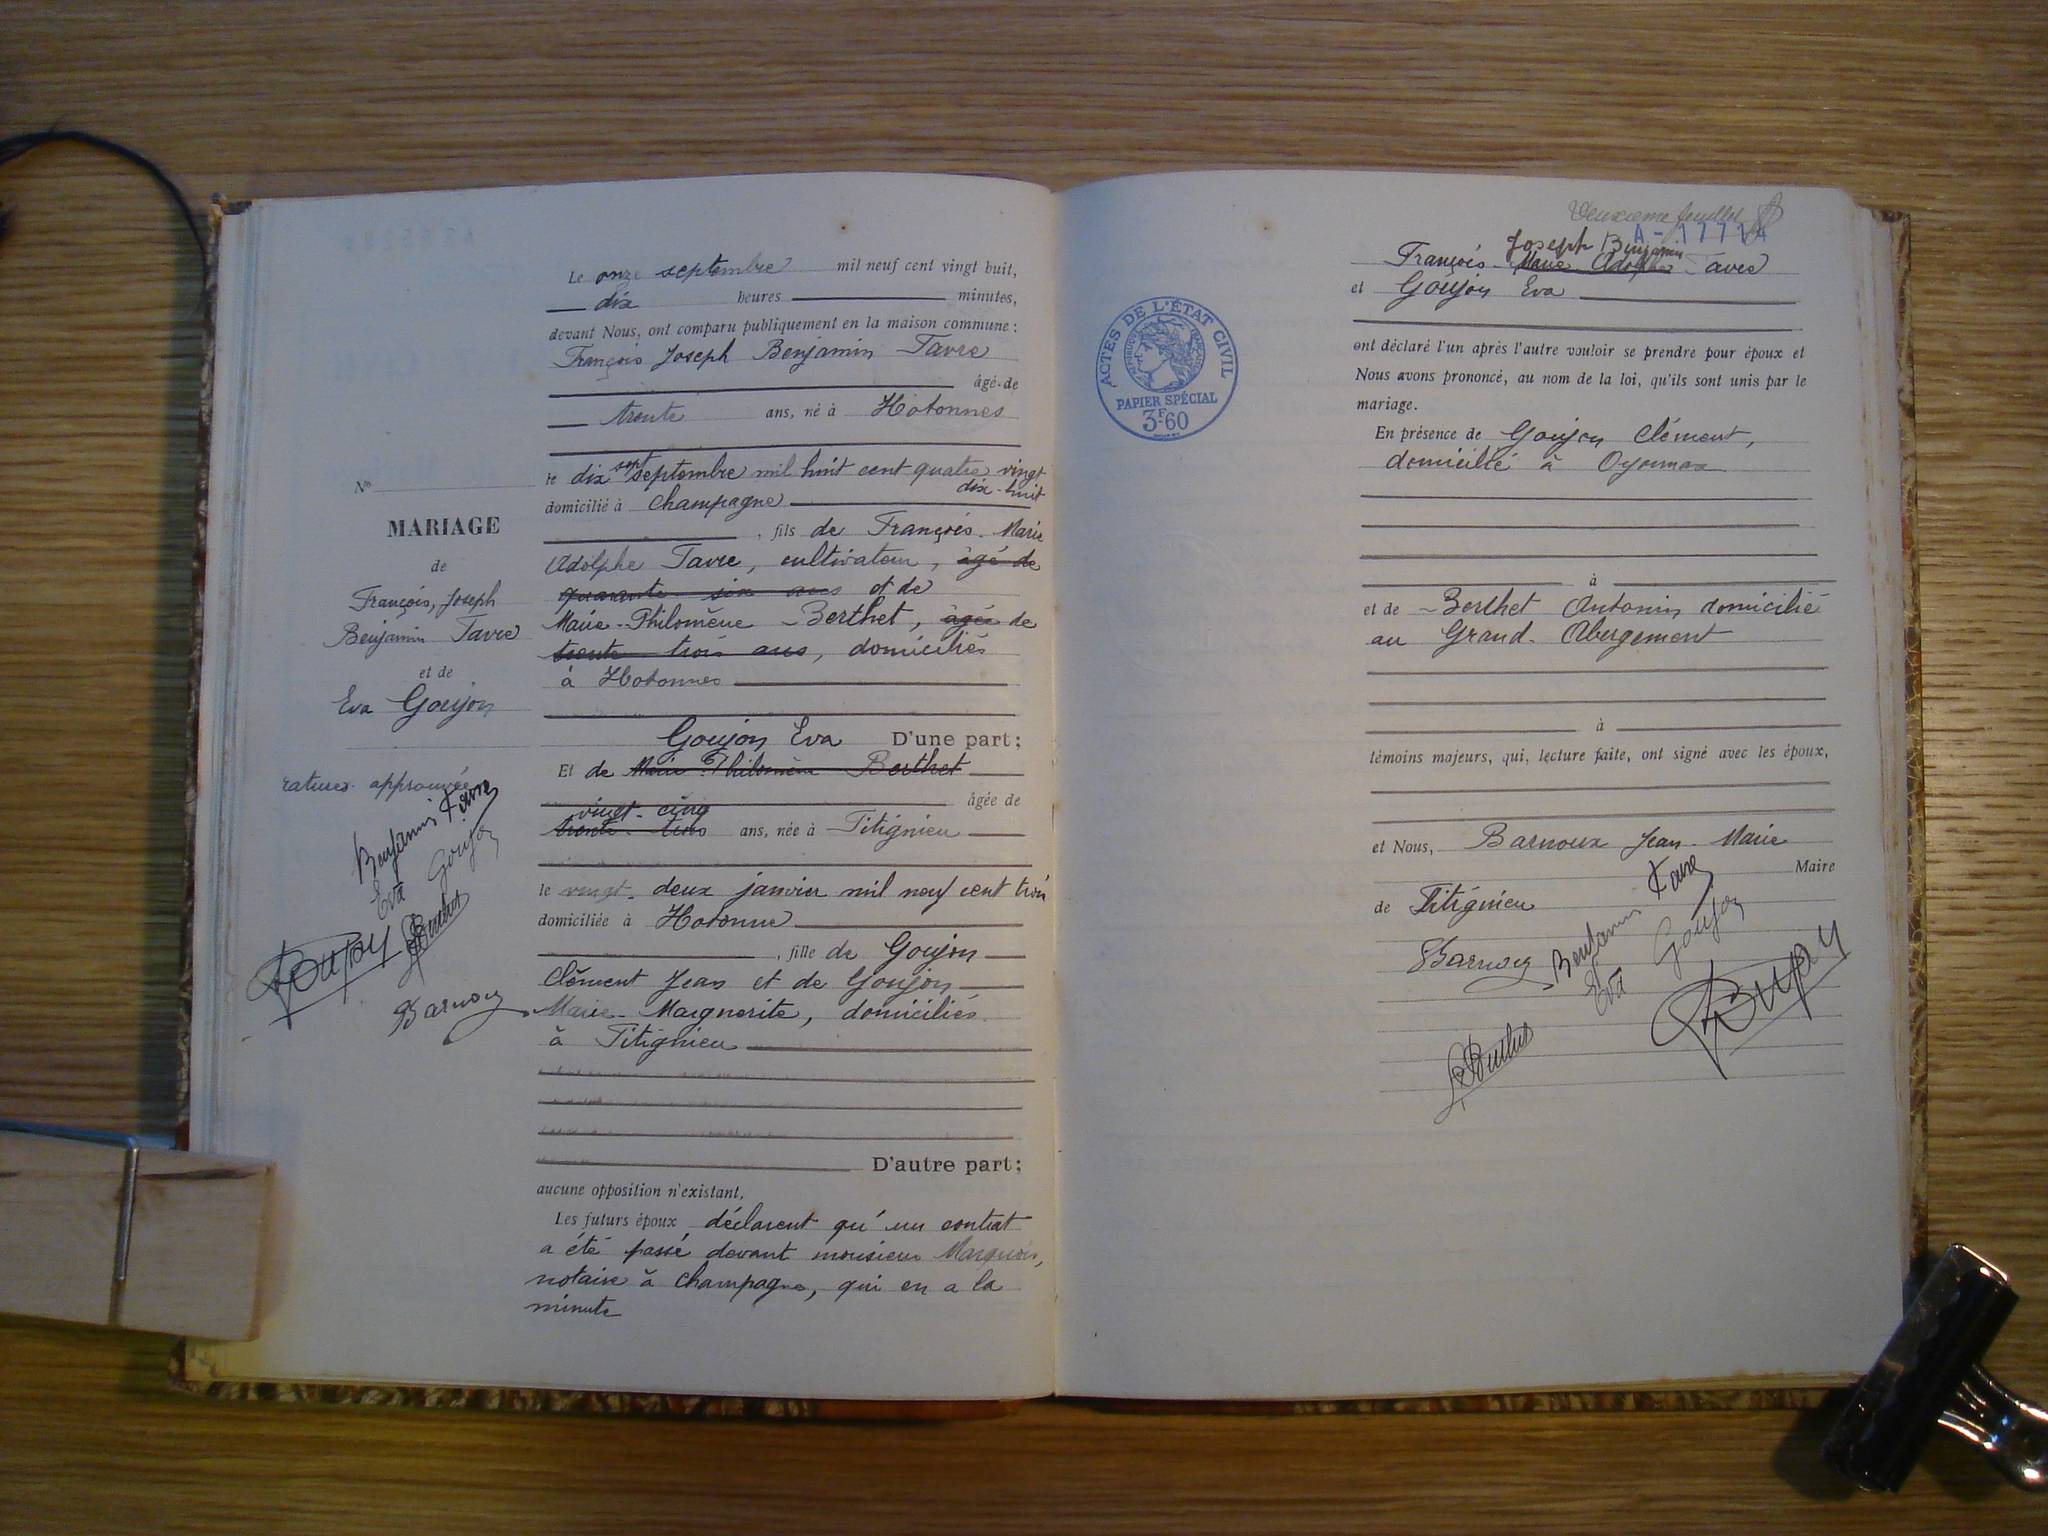 Nº
MARIAGE
de
François, Joseph
Benjamin Tavre
et de
Eva Goujon
ratures approuvées
Benjamin Favre
Eva Goujon
Goujon
Barnoux
Le onze septembre mil neuf cent vingt huit,
dix heures minutes,
devant Nous, ont comparu publiquement en la maison commune :
François Joseph Benjamin Tavre
âgé de
trente ans, né à Hotonnes
le dix sept septembre mil huit cent quatre vingt
dix-huit
domicilié à Champagne
, fils de François-Marie
Adolphe Tavre, cultivateur, âgé de
quarante six ans et de
Marie-Philomène Berthet, âgée de
trente trois ans, domiciliés
à Hotonnes
Goujon Eva D'une part ;
Et de Marie Philomène Berthet
âgée de
vingt-cinq
trente trois ans, née à Titignieu
le vingt-deux janvier mil neuf cent trois
domiciliée à Hotonne
, fille de Goujon
Clément Jean et de Goujon
Marie-Marguerite, domiciliés
à Titignieu
D'autre part ;
aucune opposition n'existant,
Les futurs époux déclarent qu'un contrat
a été passé devant monsieur
notaire à Champagne, qui en a la
minute
Deuxième feuillet
A-17714
Joseph Benjamin
François-Marie Adolphe Tavre
et Goujon Eva
ACTES DE L'ÉTAT CIVIL
RÉPUBLIQUE FRANÇAISE
PAPIER SPÉCIAL
3F60
ont déclaré l'un après l'autre vouloir se prendre pour époux et
Nous avons prononcé, au nom de la loi, qu'ils sont unis par le
mariage.
En présence de Goujon Clément,
domicilié à Oyonnax
à
et de Berthet Antonin domicilié
au Grand-Abergement
à
témoins majeurs, qui, lecture faite, ont signé avec les époux,
et Nous, Barnoux Jean-Marie
Maire
de Titignieu
Barnoux
Benjamin Favre
Eva Goujon
Goujon